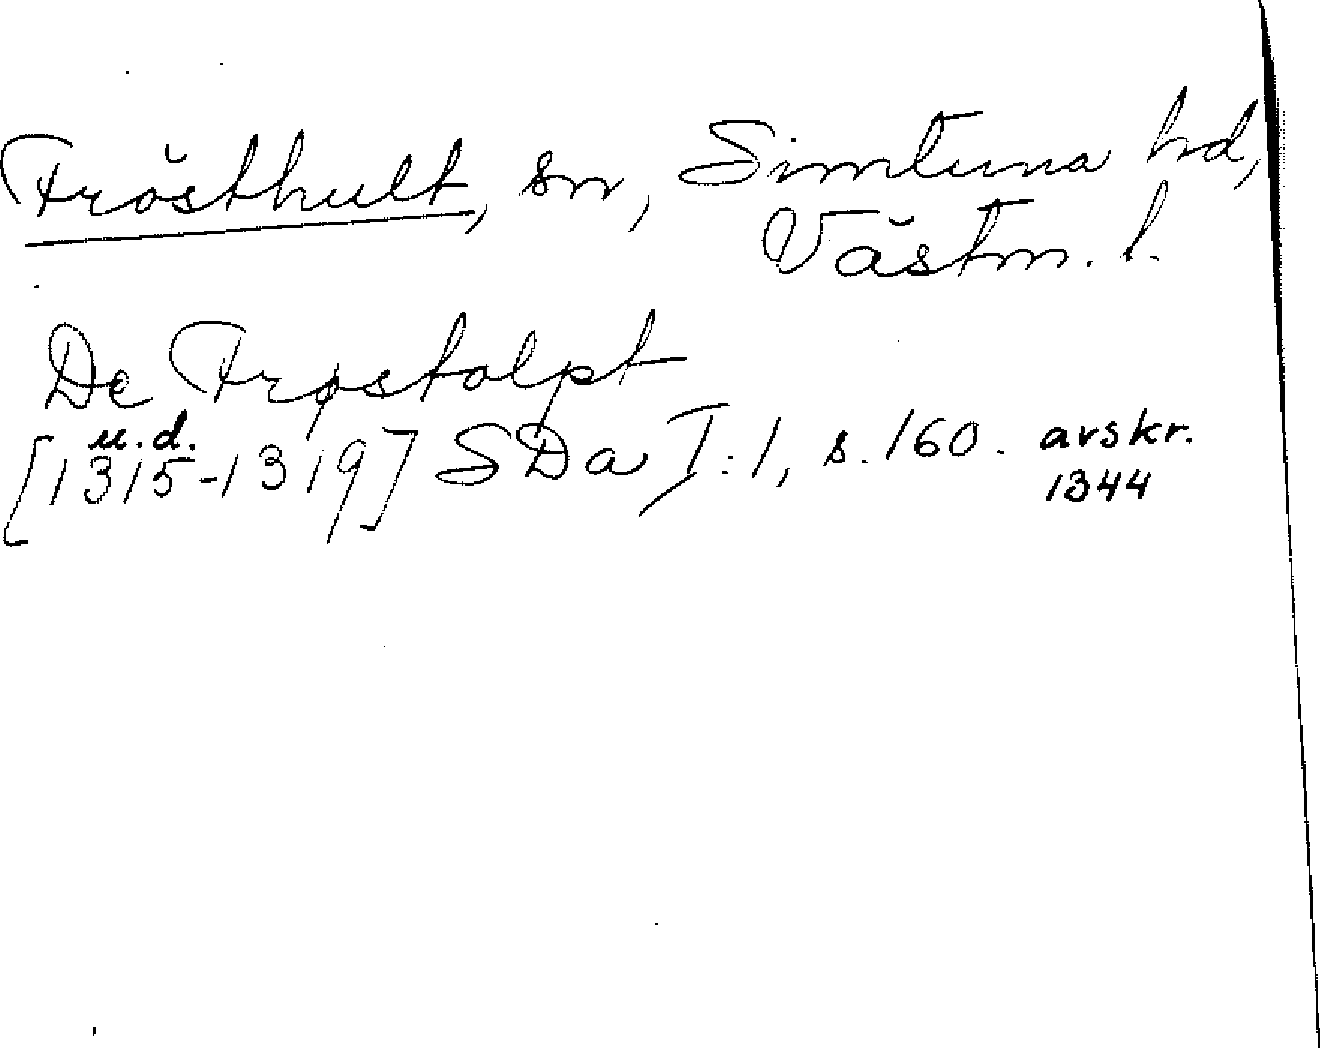 Frösthult, sn, Simtuna hd,
Västm. l.
De Frøstolpt
u.d.
[1315-1319] SDa I:1, s. 160. avskr.
1344